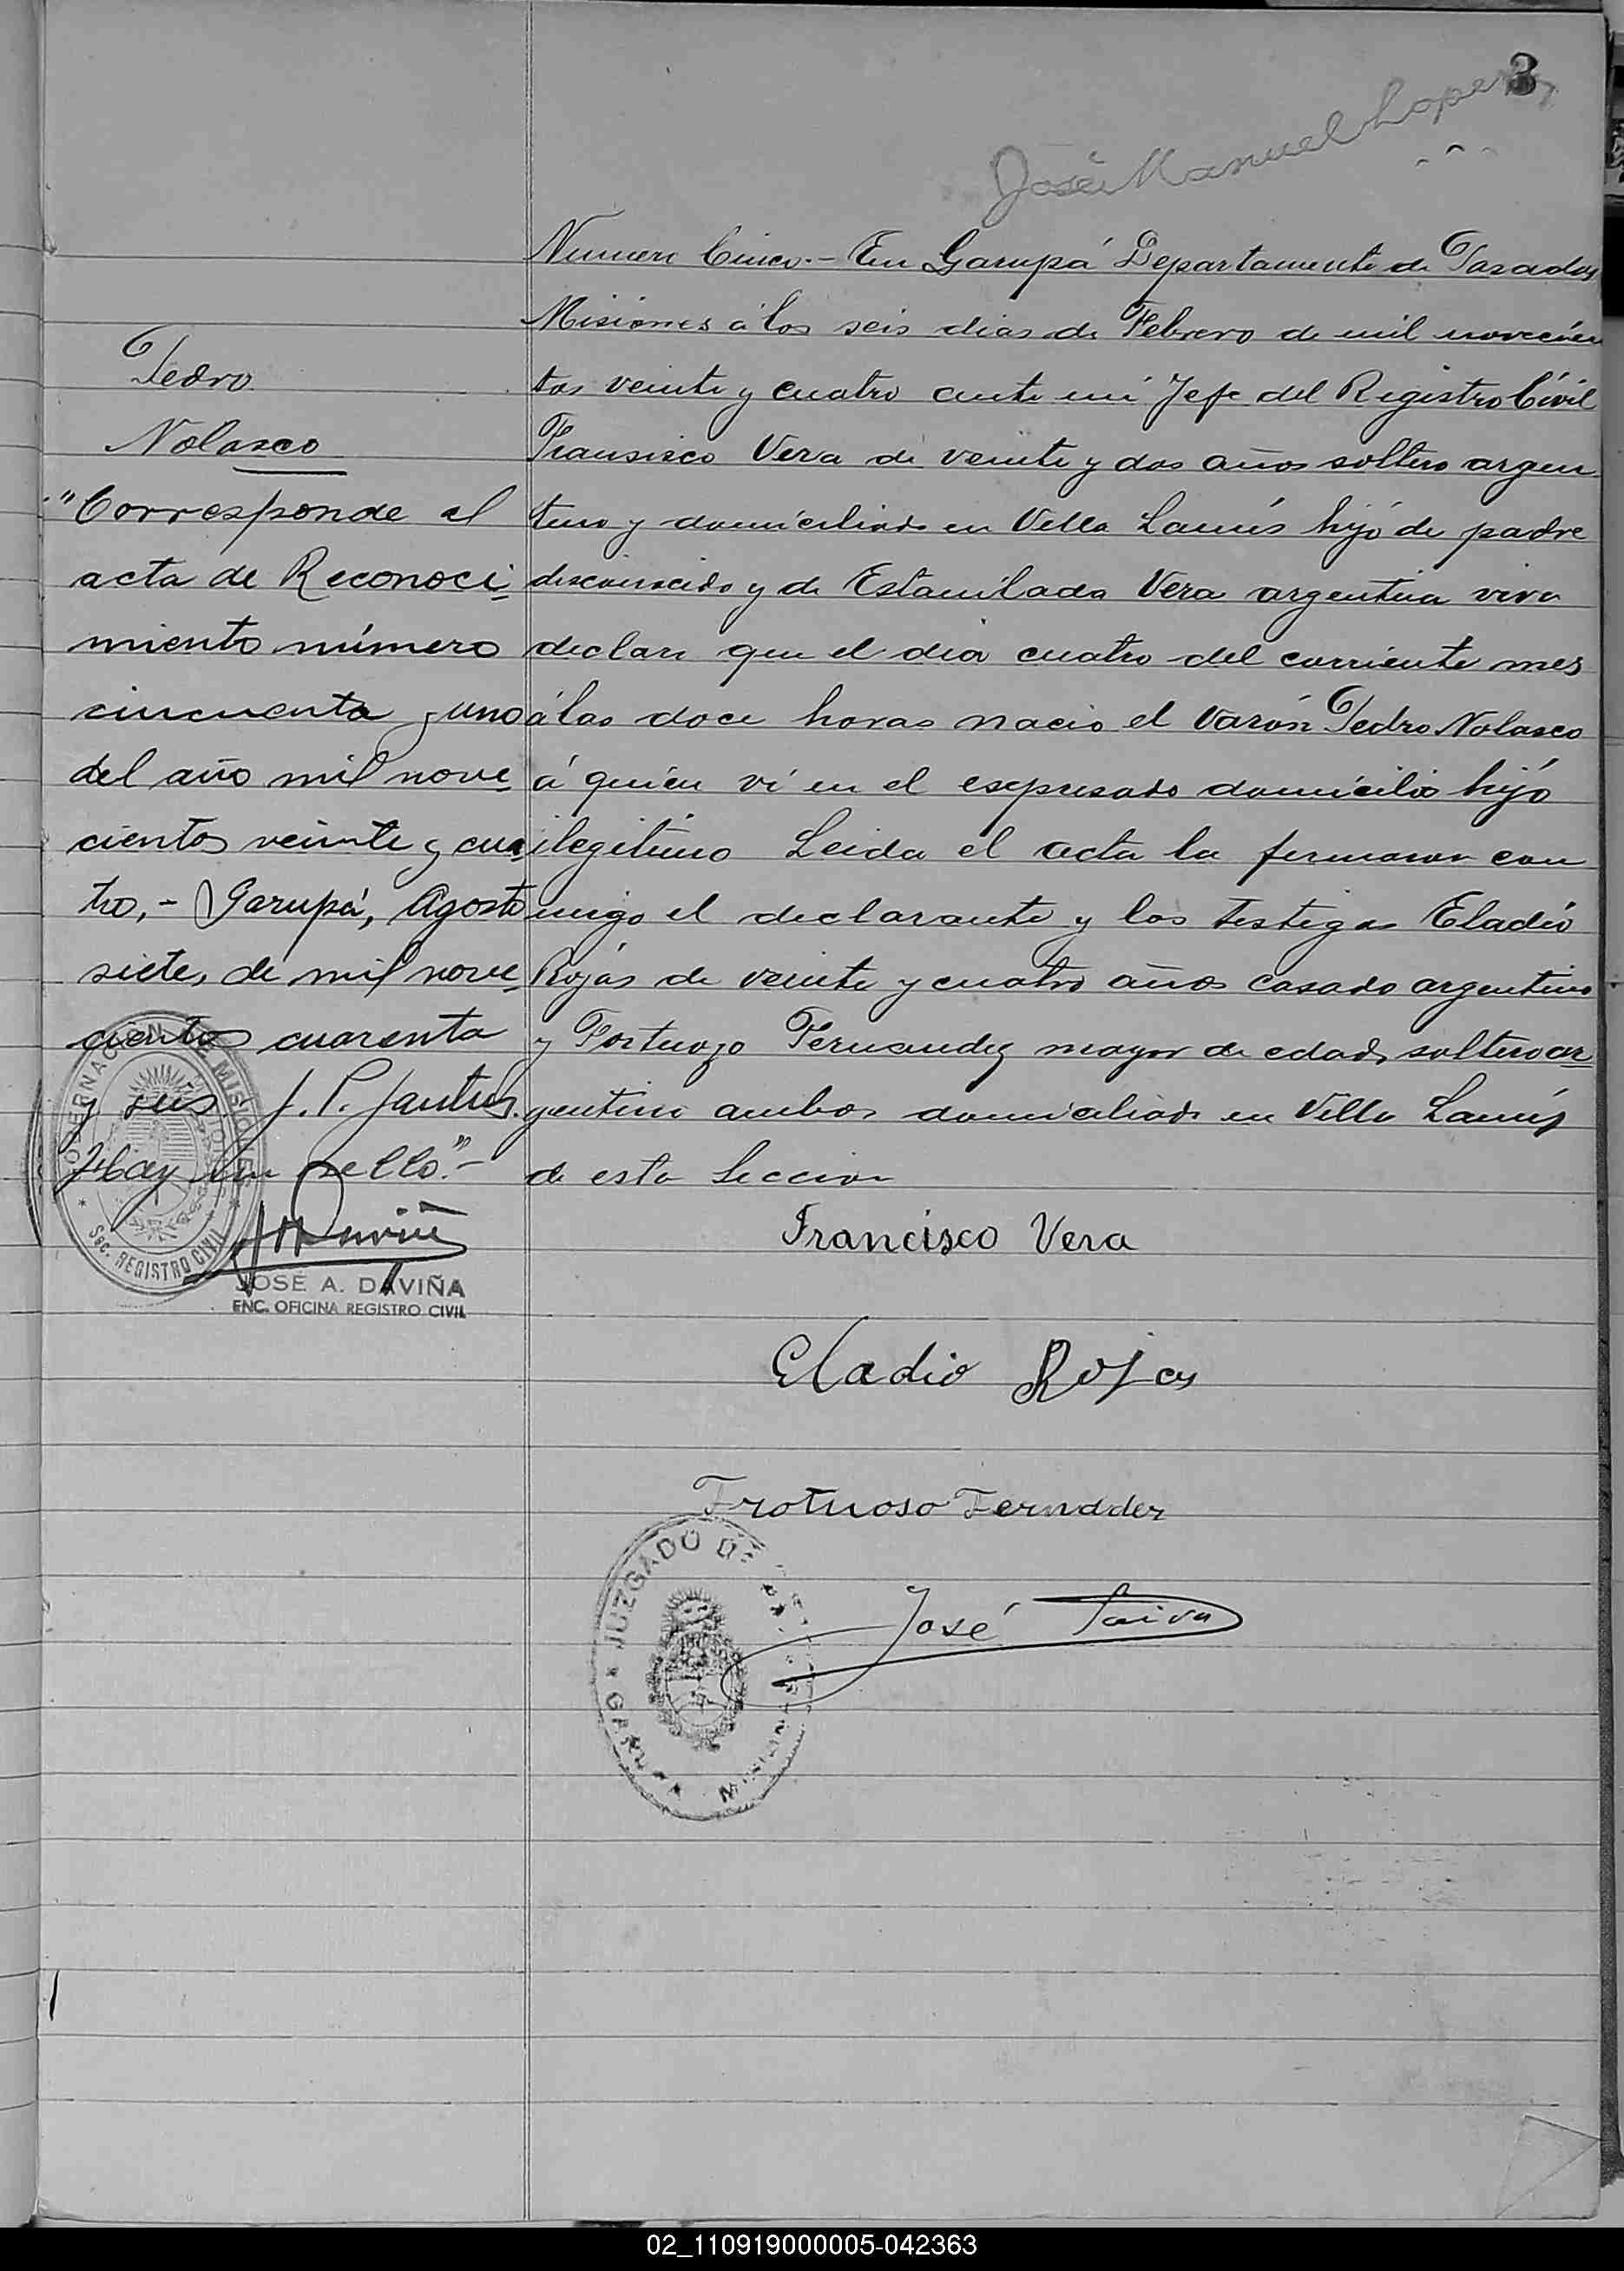 3
José Manuel Lopez
Numero Cinco.- En Garupá Departamento de Posadas
Misiones á los seis dias de Febrero de mil novecien
tos veinte y cuatro ante mi Jefe del Registro Civil
Fransisco Vera de veinte y dos años soltero argen
tino y domiciliado en Villa Lanús hijo de padre
desconocido y de Estanilada Vera argentina viva
declaro que el dia cuatro del corriente mes
á las doce horas nacio el Varón Pedro Nolasco
á quien vi en el espresado domicilio hijo
ilegitimo Leida el acta la firmaron con
migo el declarante y los testigos Eladio
Rojas de veinte y cuatro años casado argentino
y Fortuozo Fernandez mayor de edad, soltero ar
gentino ambos domiciliado en Villa Lanús
de esta Seccion
Francisco Vera
Eladio Rojas
Frotuoso Fernadez
José Paiva
JUZGADO DE PAZ
GARUPA
MISIONES
Pedro
Nolasco
"Corresponde al
acta de Reconoci-
miento número
cincuenta y uno
del año mil nove-
cientos veinte y cua
tro,- Garupá, Agosto
siete, de mil nove-
cientos cuarenta
y seis J. P.
Hay un sello."-
GOBERNACION DE MISIONES
Sec. REGISTRO CIVIL
JOSÉ A. DAVIÑA
ENC. OFICINA REGISTRO CIVIL
02_110919000005-042363